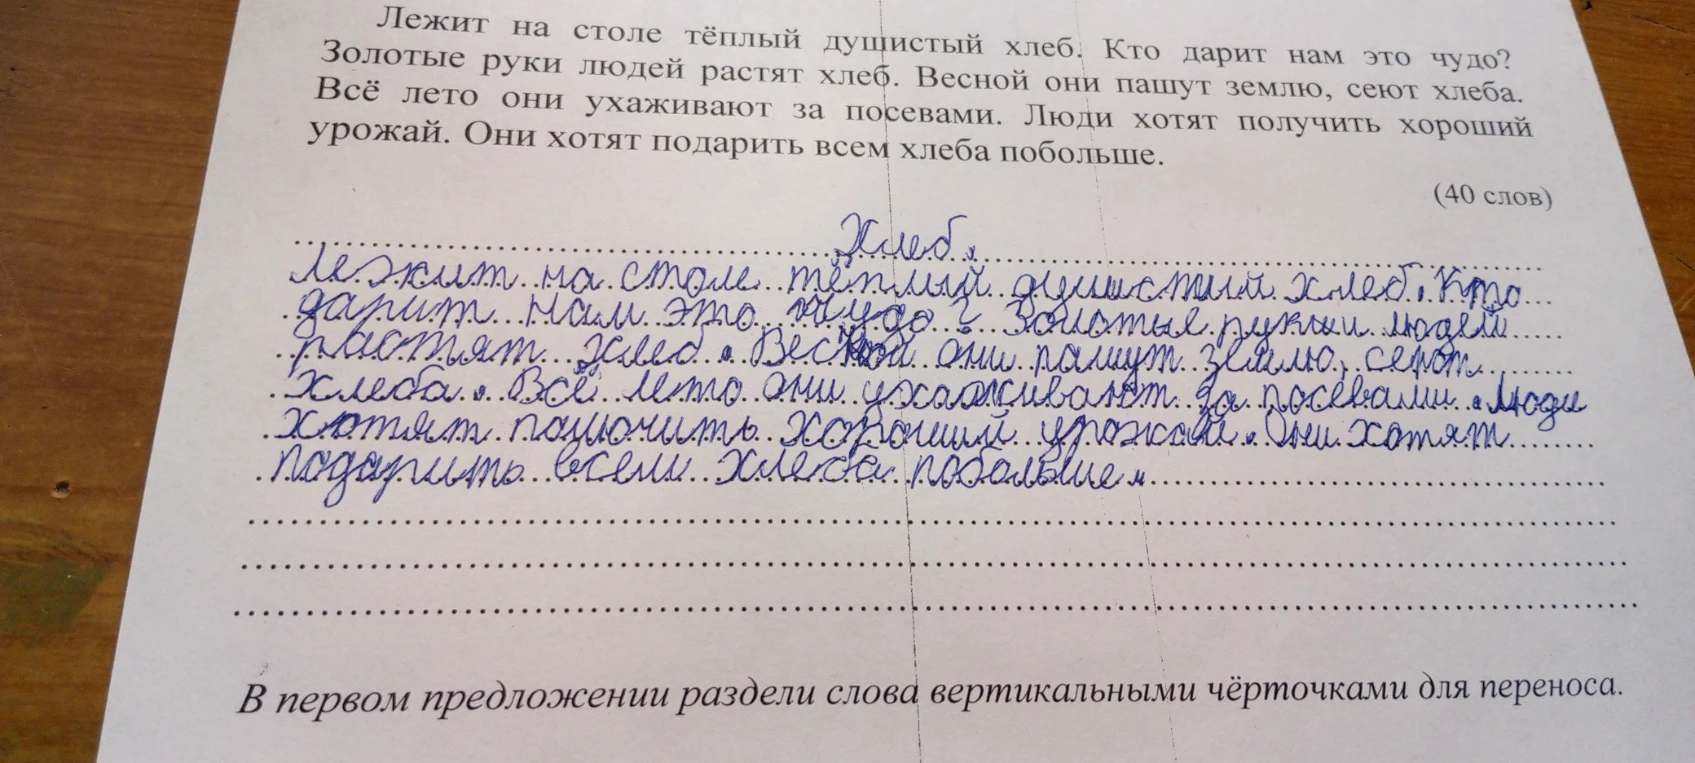 Лежит на столе тёплый душистый хлеб. Кто дарит нам это чудо?
Золотые руки людей растят хлеб. Весной они пашут землю, сеют хлеба.
Всё лето они ухаживают за посевами. Люди хотят получить хороший
урожай. Они хотят подарить всем хлеба побольше.
(40 слов)
Хлеб.
Лежит на столе тёплый душистый хлеб. Кто
дарит нам это чудо? Золотые руки людей
растят хлеб. Весной они пашут землю, сеют
хлеба. Всё лето они ухаживают за посевами. Люди
хотят получить хороший урожай. Они хотят
подарить всем хлеба побольше.
В первом предложении раздели слова вертикальными чёрточками для переноса.